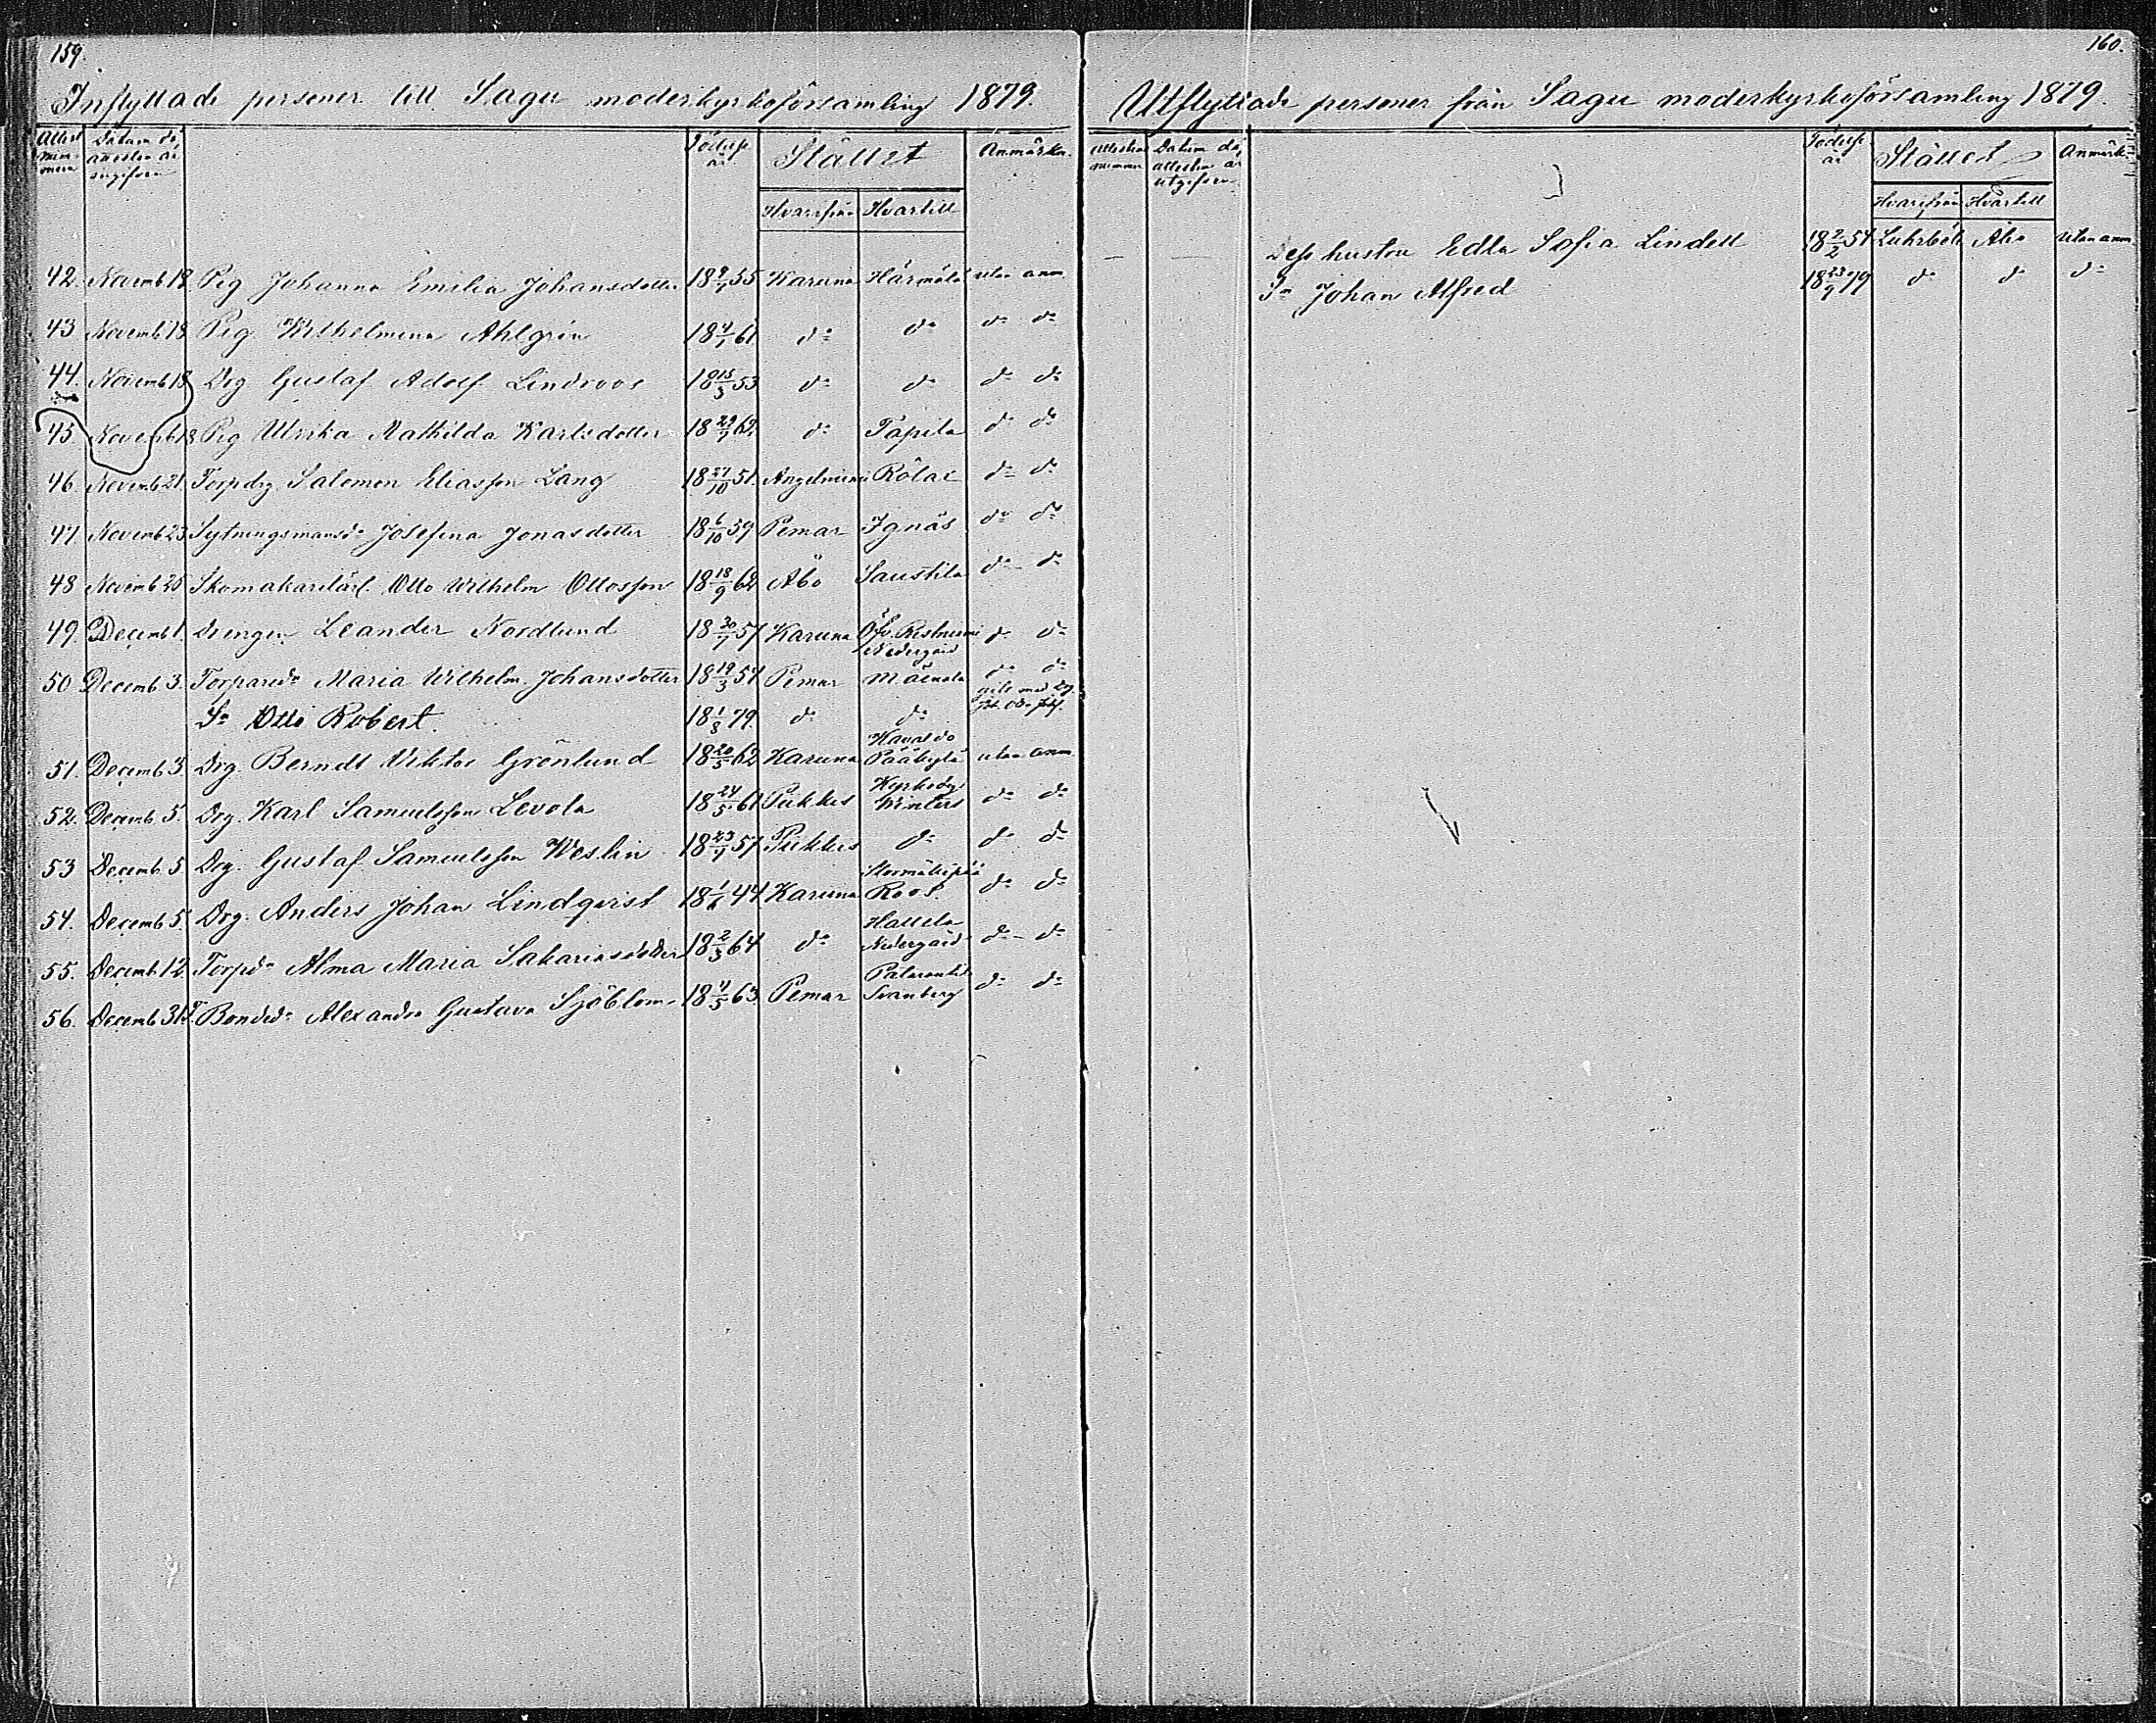 159.
Inflyttade personer till Sagu moderkyrkoförsamling 1879.
Datum då attesten är Födelse år Stället Anmärkn.
Hvarifrån Hvartill
42. Novemb 18 Pig Johanna Emilia Johansdotter 18 55 Karuna Härmälä utan anm
43 Novemb 18 Pig Wilhelmina Ahlgrén 18 61 do do do do
44. Novemb 18 Drg Gustaf Adolf Lindroos 18 15/3 53 do do do do
45. Novemb 18 Pig Ulrika Mathilda Karlsdotter 18 62 do Tapila do do
46. Novemb 21 Torpdrg Salomon Eliasson Lang 18 27/10 51 Angelniemi Rölax do do
47 Novemb 23 Sytningsmansdr Josefina Jonasdotter 18 6/10 59 Pemar Ignäs do do
48 Novemb 25 Skomakarelärl. Otto Wilhelm Ottosson 18 18/9 62 Åbo Saustila do do
49. Decemb 1. Drengen Leander Nordlund 18 30/7 57 Karuna Öfv. Ristniemi Nedergård do do
50 Decemb 3. Torparedr Maria Wilhelm. Johansdotter 18 19/3 54 Pemar do do
Sn Otto Robert. 18 1/8 79. do do
51. Decemb 3. Drg. Berndt Viktor Grönlund 18 20/5 62 Karuna Pääkylä utan anm.
52. Decemb 5. Drg. Karl Samuelsson Levola 18 24/5 61 Pikkis Winters do do
53 Decemb 5. Drg. Gustaf Samuelsson Weslin 18 57 Pikkis do do do
54. Decemb 5. Drg. Anders Johan Lindqvist 18 44 Karuna Roos. do do
55. Decemb 12. Torpdr Alma Maria Sakariasdotter 18 2/3 64 do Hallela Nedergård do do
56. Decemb 31 Bondedr Alexandra Gustava Sjöblom 18 4/5 63. Pemar Svanberg do do
160.
Utflyttade personer från Sagu moderkyrkoförsamling 1879.
Attestens nummer Datum då attesten är utgifven Födelse år Stället Anmärkn
Hvarifrån Hvartill
Dess hustru Edla Sofia Lindell 18 2/2 54 Åbo Utan anm
Sn Johan Alfred 18 23/9 79 do do do